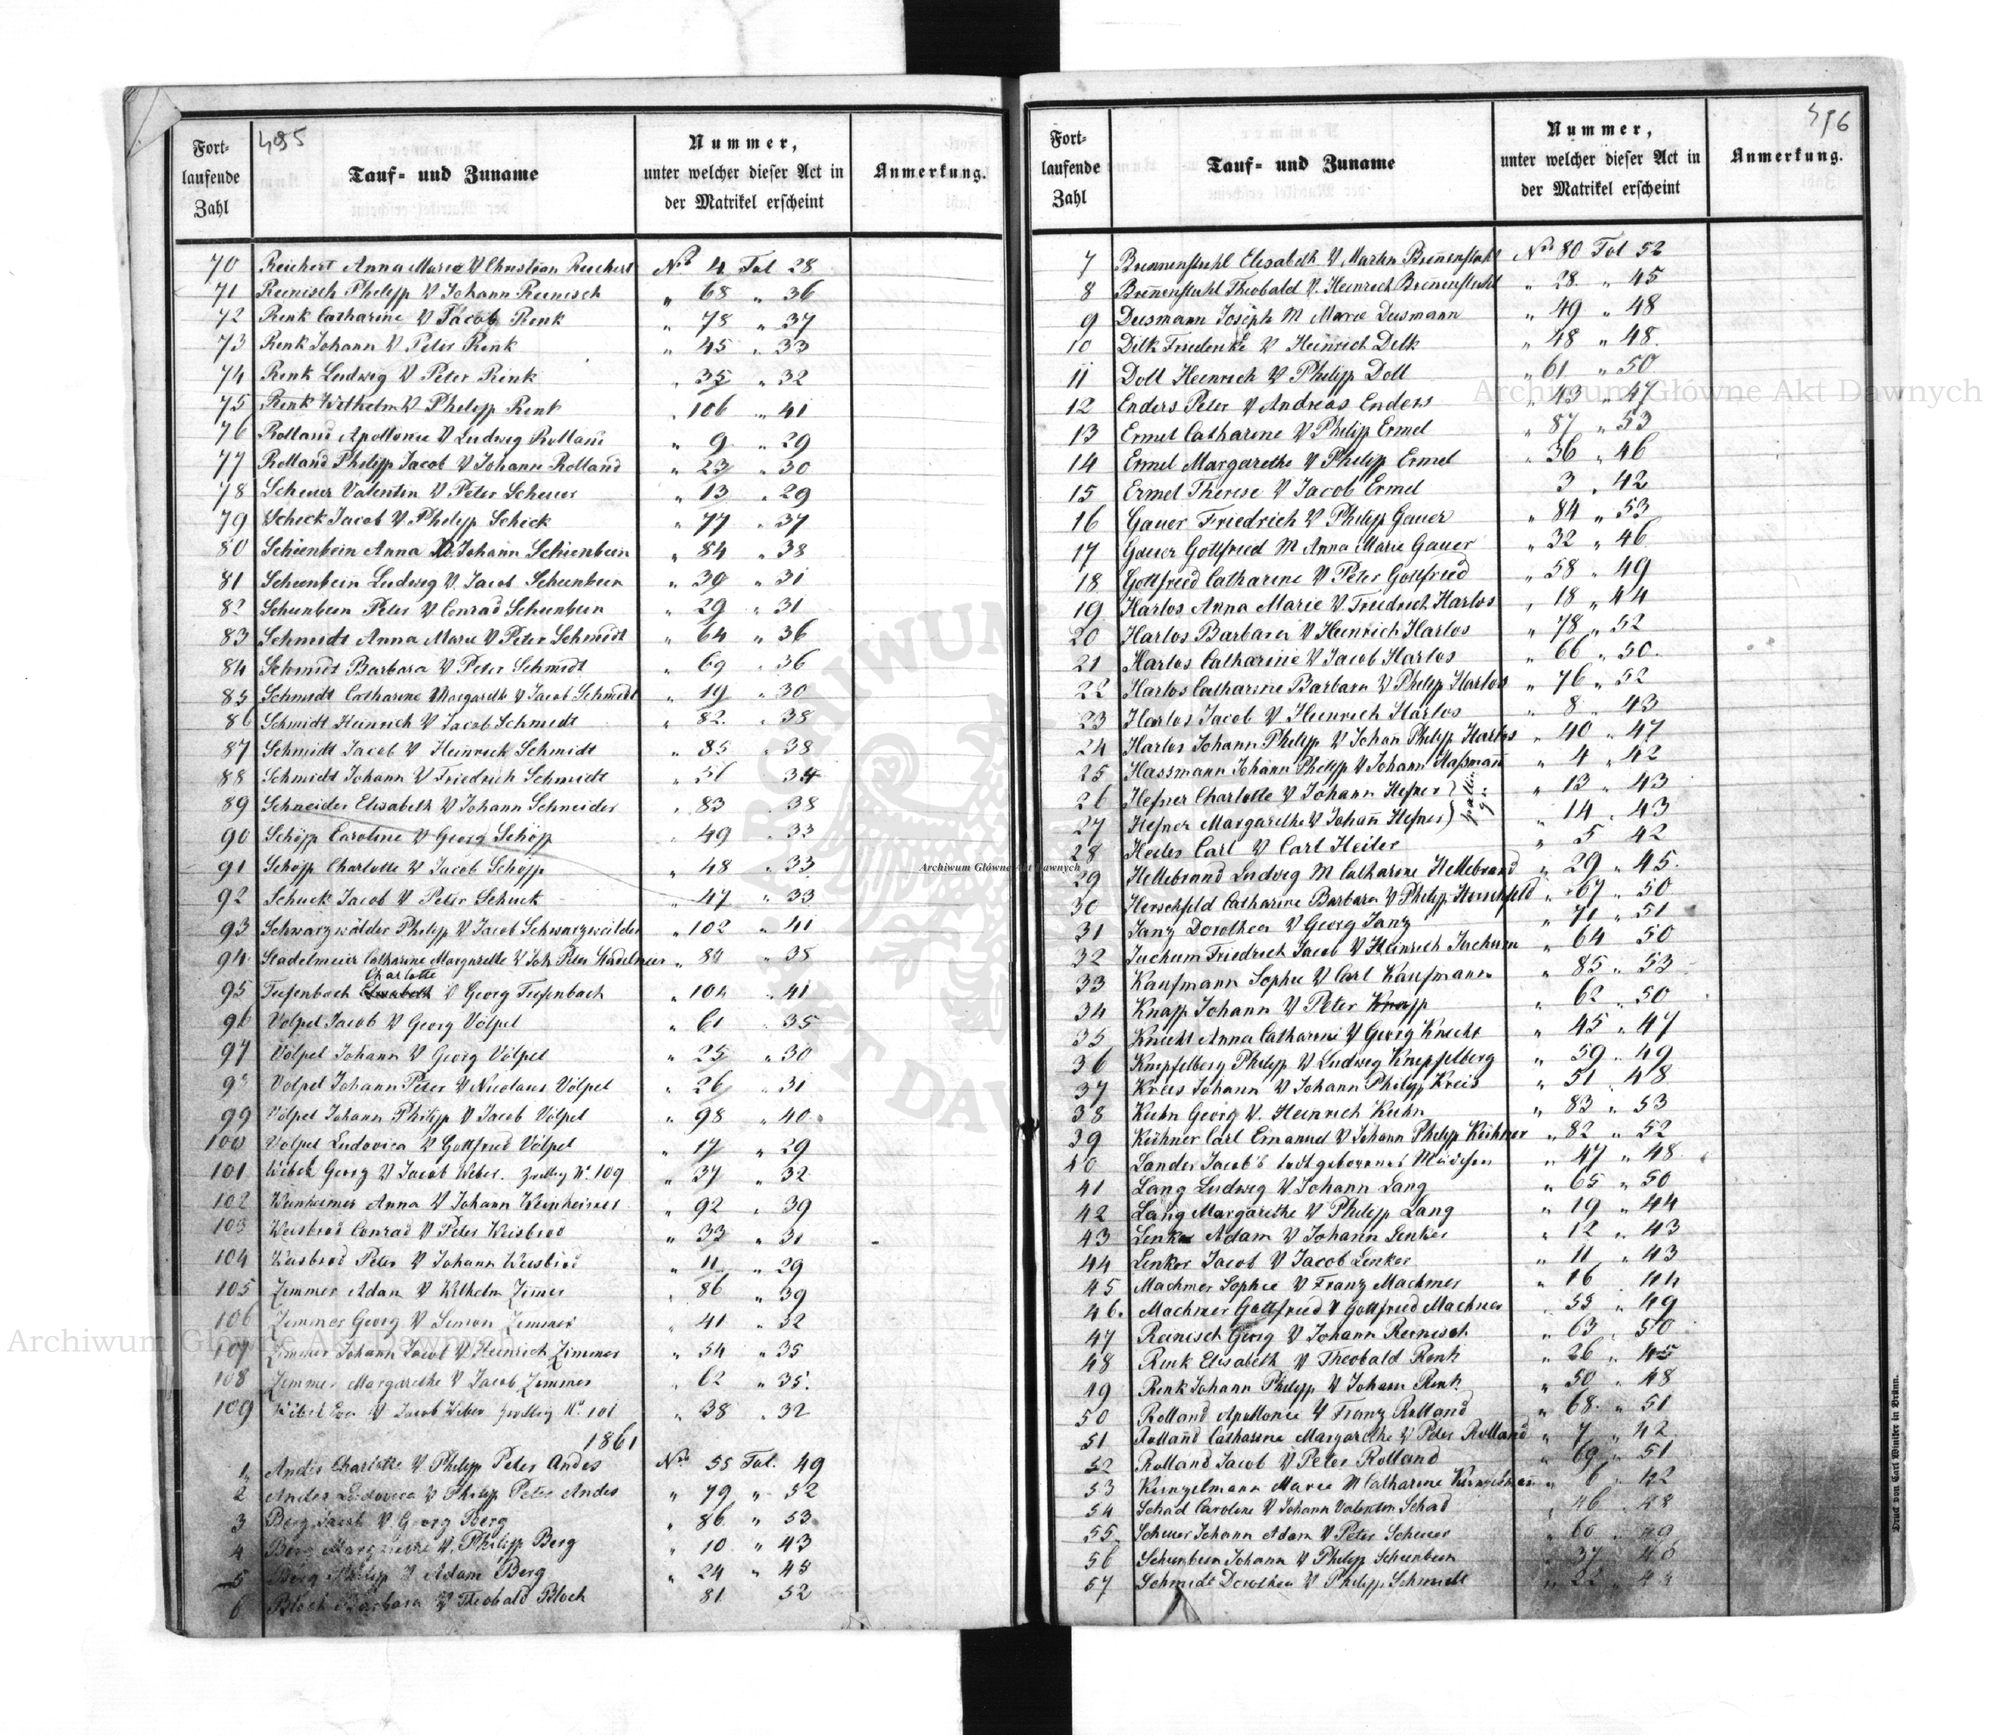 495
Fort-
laufende
Zahl
Tauf- und Zuname
Nummer,
unter welcher dieser Act in
der Matrikel erscheint
Anmerkung.
70 Reichert Anna Marie V Christian Reichert No 4 Fol 28
71 Reinisch Philipp V Johann Reinisch " 68 " 36
72 Renk Catharine V Jacob Renk " 78 " 37
73 Renk Johann V Peter Renk " 45 " 33
74 Renk Ludwig V Peter Renk " 35 " 32
75 Renk Wilhelm V Philipp Renk " 106 " 41
76 Rolland Apollonie V Ludwig Rolland " 9 " 29
77 Rolland Philipp Jacob V Johann Rolland " 23 " 30
78 Scheuer Valentin V Peter Scheuer " 13 " 29
79 Schick Jacob V Philipp Schick " 77 " 37
80 Schienbein Anna V Johann Schienbein " 84 " 38
81 Scheenbein Ludwig V Jacob Scheenbein " 30 " 31
82 Scheenbein Peter V Conrad Scheenbein " 29 " 31
83 Schmidt Anna Marie V Peter Schmidt " 64 " 36
84 Schmidt Barbara V Peter Schmidt " 69 " 36
85 Schmidt Catharine Margareth V Jacob Schmidt " 19 " 30
86 Schmidt Heinrich V Jacob Schmidt " 82 " 38
87 Schmidt Jacob V Heinrich Schmidt " 85 " 38
88 Schmidt Johann V Friedrich Schmidt " 51 34
89 Schneider Elisabeth V Johann Schneider " 83 " 38
90 Schöpp Caroline V Georg Schöpp " 49 " 33
91 Schöpp Charlotte V Jacob Schöpp " 48 " 33
92 Schuck Jacob V Peter Schuck " 47 " 33
93 Schwarzwälder Philipp V Jacob Schwarzwälder " 102 " 41
94 Stadelmeier Catharine Margarethe V Joh. Peter Stadelmeier " 81 " 38
Charlotte
95 Tiefenbach Elisabeth V Georg Tiefenbach " 104 " 41
96 Völpel Jacob V Georg Völpel " 61 " 35
97 Völpel Johann V Georg Völpel " 25 " 30
98 Völpel Johann Peter V Nicolaus Völpel " 26 " 31
99 Völpel Johann Philipp V Jacob Völpel " 98 " 40
100 Völpel Ludovica V Gottfried Völpel " 17 " 29
101 Weber Georg V Jacob Weber. Zwilling No 109 " 37 " 32
102 Weinheimer Anna V Johann Weinheimer " 92 " 39
103 Weisbrod Conrad V Peter Weisbrod " 33 " 31
104 Weisbrod Peter V Johann Weisbrod " 11 " 29
105 Zimmer Adam V Wilhelm Zimer " 86 " 39
106 Zimmer Georg V Simon Zimmer " 41 " 32
107 Zimmer Johann Jacob V Heinrich Zimmer " 54 " 35
108 Zimmer Margarethe V Jacob Zimmer " 62 " 35
109 Weber Eva V Jacob Weber Zwilling No 101 " 38 " 32
1861
1 Andes Charlotte V Philipp Peter Andes No 55 Fol. 49
2 Andes Ludovica V Philipp Peter Andes " 79 " 52
3 Berg Jacob V Georg Berg " 86 " 53
4 Berg Margarethe V. Philipp Berg " 10 " 43
5 Berg Philipp V Adam Berg " 24 " 45
6 Bloch Barbara V Theobald Bloch 81 52
Fort-
laufende
Zahl
Tauf- und Zuname
Nummer,
unter welcher dieser Act in
der Matrikel erscheint
Anmerkung.
7 Brennenstuhl Elisabeth V Martin Brennenstuhl No 80 Fol 52
8 Brennenstuhl Theobald V. Heinrich Brennenstuhl " 28 " 45
9 Deusmann Joseph M Marie Deusmann " 49 " 48
10 Dilk Friederike V Heinrich Dilk " 48 " 48
11 Doll Heinrich V Philipp Doll " 61 " 50
12 Enders Peter V Andreas Enders " 43 " 47
13 Ermel Catharine V Philipp Ermel " 87 " 53
14 Ermel Margarethe V Philipp Ermel " 36 " 46
15 Ermel Therese V Jacob Ermel 3 " 42
16 Gauer Friedrich V Philipp Gauer " 84 " 53
17 Gauer Gottfried M Anna Marie Gauer " 32 " 46
18 Gottfried Catharine V Peter Gottfried " 58 " 49
19 Harlos Anna Marie V Friedrich Harlos " 18 " 44
20 Harlos Barbara V Heinrich Harlos " 78 " 52
21 Harlos Catharine V Jacob Harlos " 66 " 50
22 Harlos Catharine Barbara V Philipp Harlos " 76 " 52
23 Harlos Jacob V Heinrich Harlos " 8 " 43
24 Harlos Johann Philipp V Johan Philipp Harlos " 40 " 47
25 Hassmann Johann Philipp V Johann Haßmann " 4 " 42
26 Hefner Charlotte V Johann Hefner " 13 " 43
27 Hefner Margarethe V Johann Hefner " 14 " 43
28 Heiler Carl V Carl Heiler " 5 42
29 Hellebrand Ludwig M Catharine Hellebrand " 29 " 45
30 Herschfeld Catharine Barbara V Philipp Herschfeld " 67 " 50
31 Janz Dorothea V Georg Janz " 71 " 51
32 Juchum Friedrich Jacob V Heinrich Juchum " 64 50
33 Kaufmann Sophie V Carl Kaufmann " 85 " 53
34 Knapp Johann V Peter Knapp " 62 " 50
35 Knecht Anna Catharine V Georg Knecht " 45 " 47
36 Knipfelberg Philipp V Ludwig Knipfelberg " 59 " 49
37 Kreis Johann V Johann Philipp Kreis " 51 " 48
38 Kuhn Georg V. Heinrich Kuhn " 83 " 53
39 Kühner Carl Emanuel V Johann Philipp Kühner " 82 " 52
40 Lander Jacob's todtgeborenes Mädchen " 47 " 48
41 Lang Ludwig V Johann Lang " 65 " 50
42 Lang Margarethe V Philipp Lang " 19 " 44
43 Lenker Adam V Johann Lenker " 12 " 43
44 Lenker Jacob V Jacob Lenker " 11 " 43
45 Machmer Sophie V Franz Machmer " 16 44
46. Machmer Gottfried V Gottfried Machmer " 55 " 49
47 Reinisch Georg V Johann Reinisch " 63 " 50
48 Renk Elisabeth V Theobald Renk " 26 " 45
49 Renk Johann Philipp V Johann Renk " 50 " 48
50 Rolland Apollonie V Franz Rolland " 68 " 51
51 Rolland Catharine Margarethe V Peter Rolland " 7 " 42
52 Rolland Jacob V Peter Rolland " 69 " 51
53 Marie M Catharine " 6 " 42
54 Schad Caroline V Johann Valentin Schad " 46 " 48
55 Scheuer Johann Adam V Peter Scheuer " 60 " 49
56 Scheenbein Johann V Philipp Scheenbein " 37 46
57 Schmidt Dorothea V Philipp Schmidt
Druck von Carl Winiker in Brünn.
Archiwum Główne Akt Dawnych
Archiwum Główne Akt Dawnych
Archiwum Główne Akt Dawnych